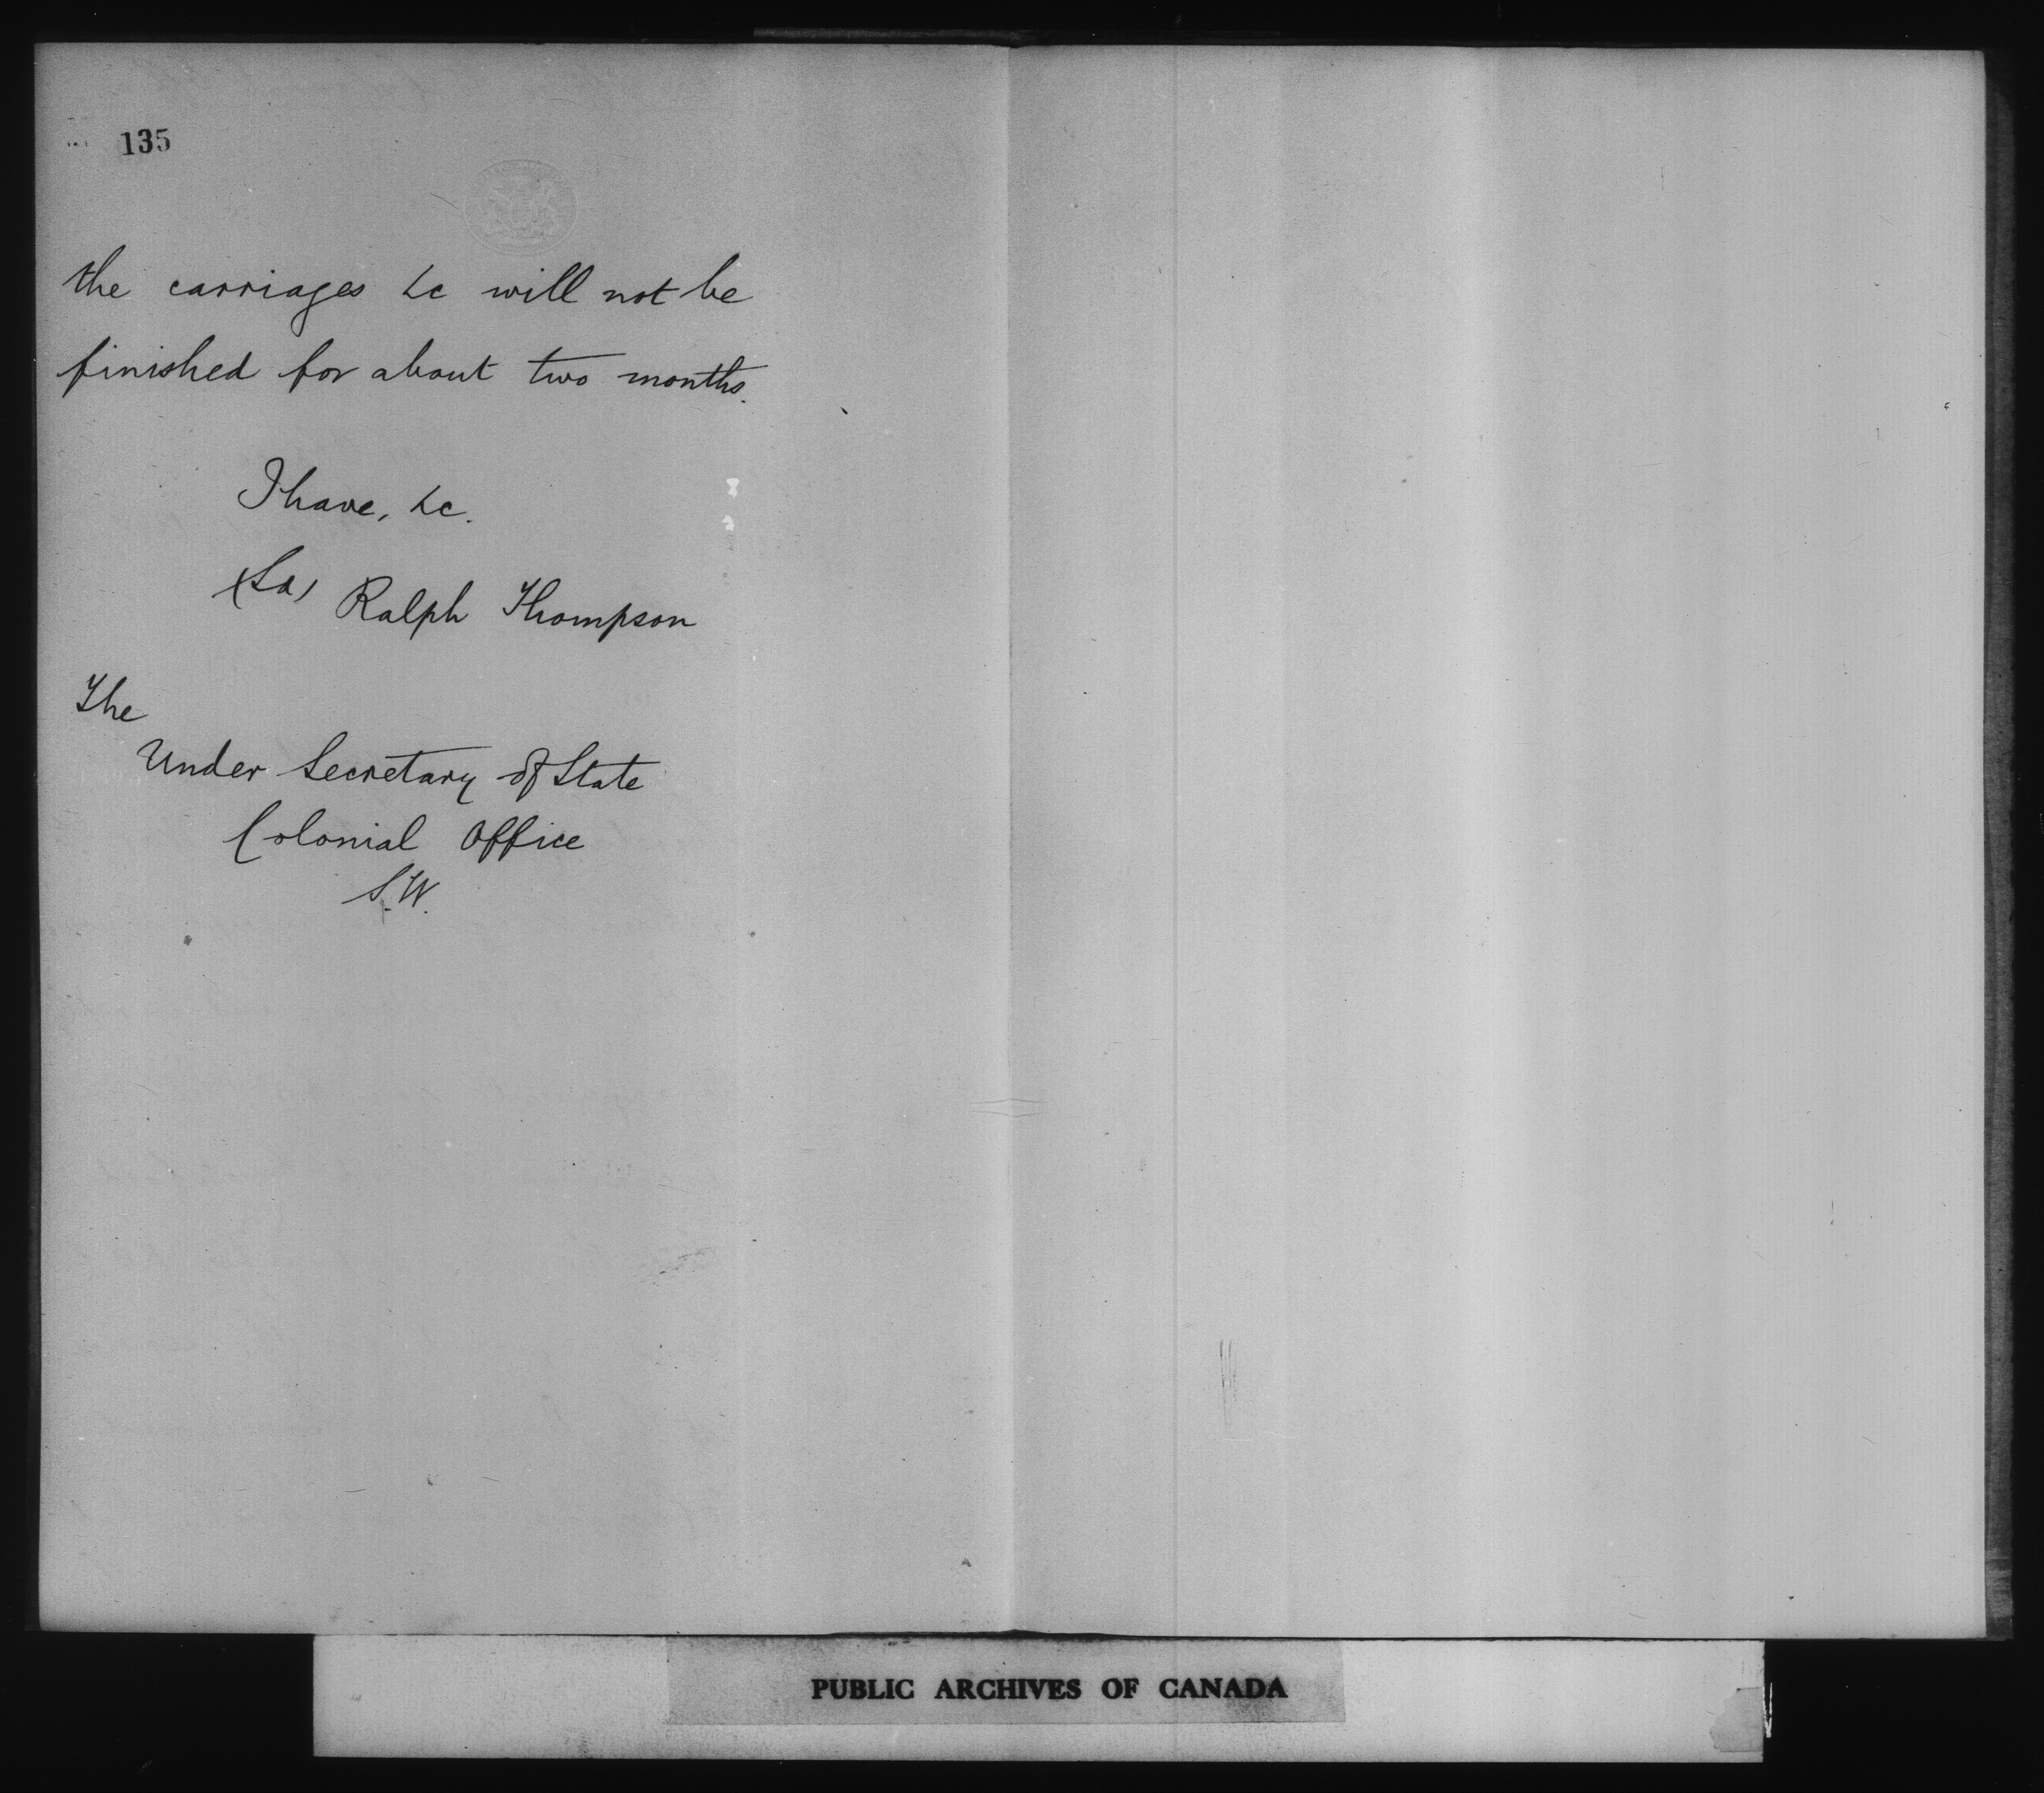 135
the carriages &c will not be
finished for about two months.
I have, &c.
(Sd) Ralph Thompson
The
Under Secretary of State
Colonial Office
S.W.
PUBLIC ARCHIVES OF CANADA